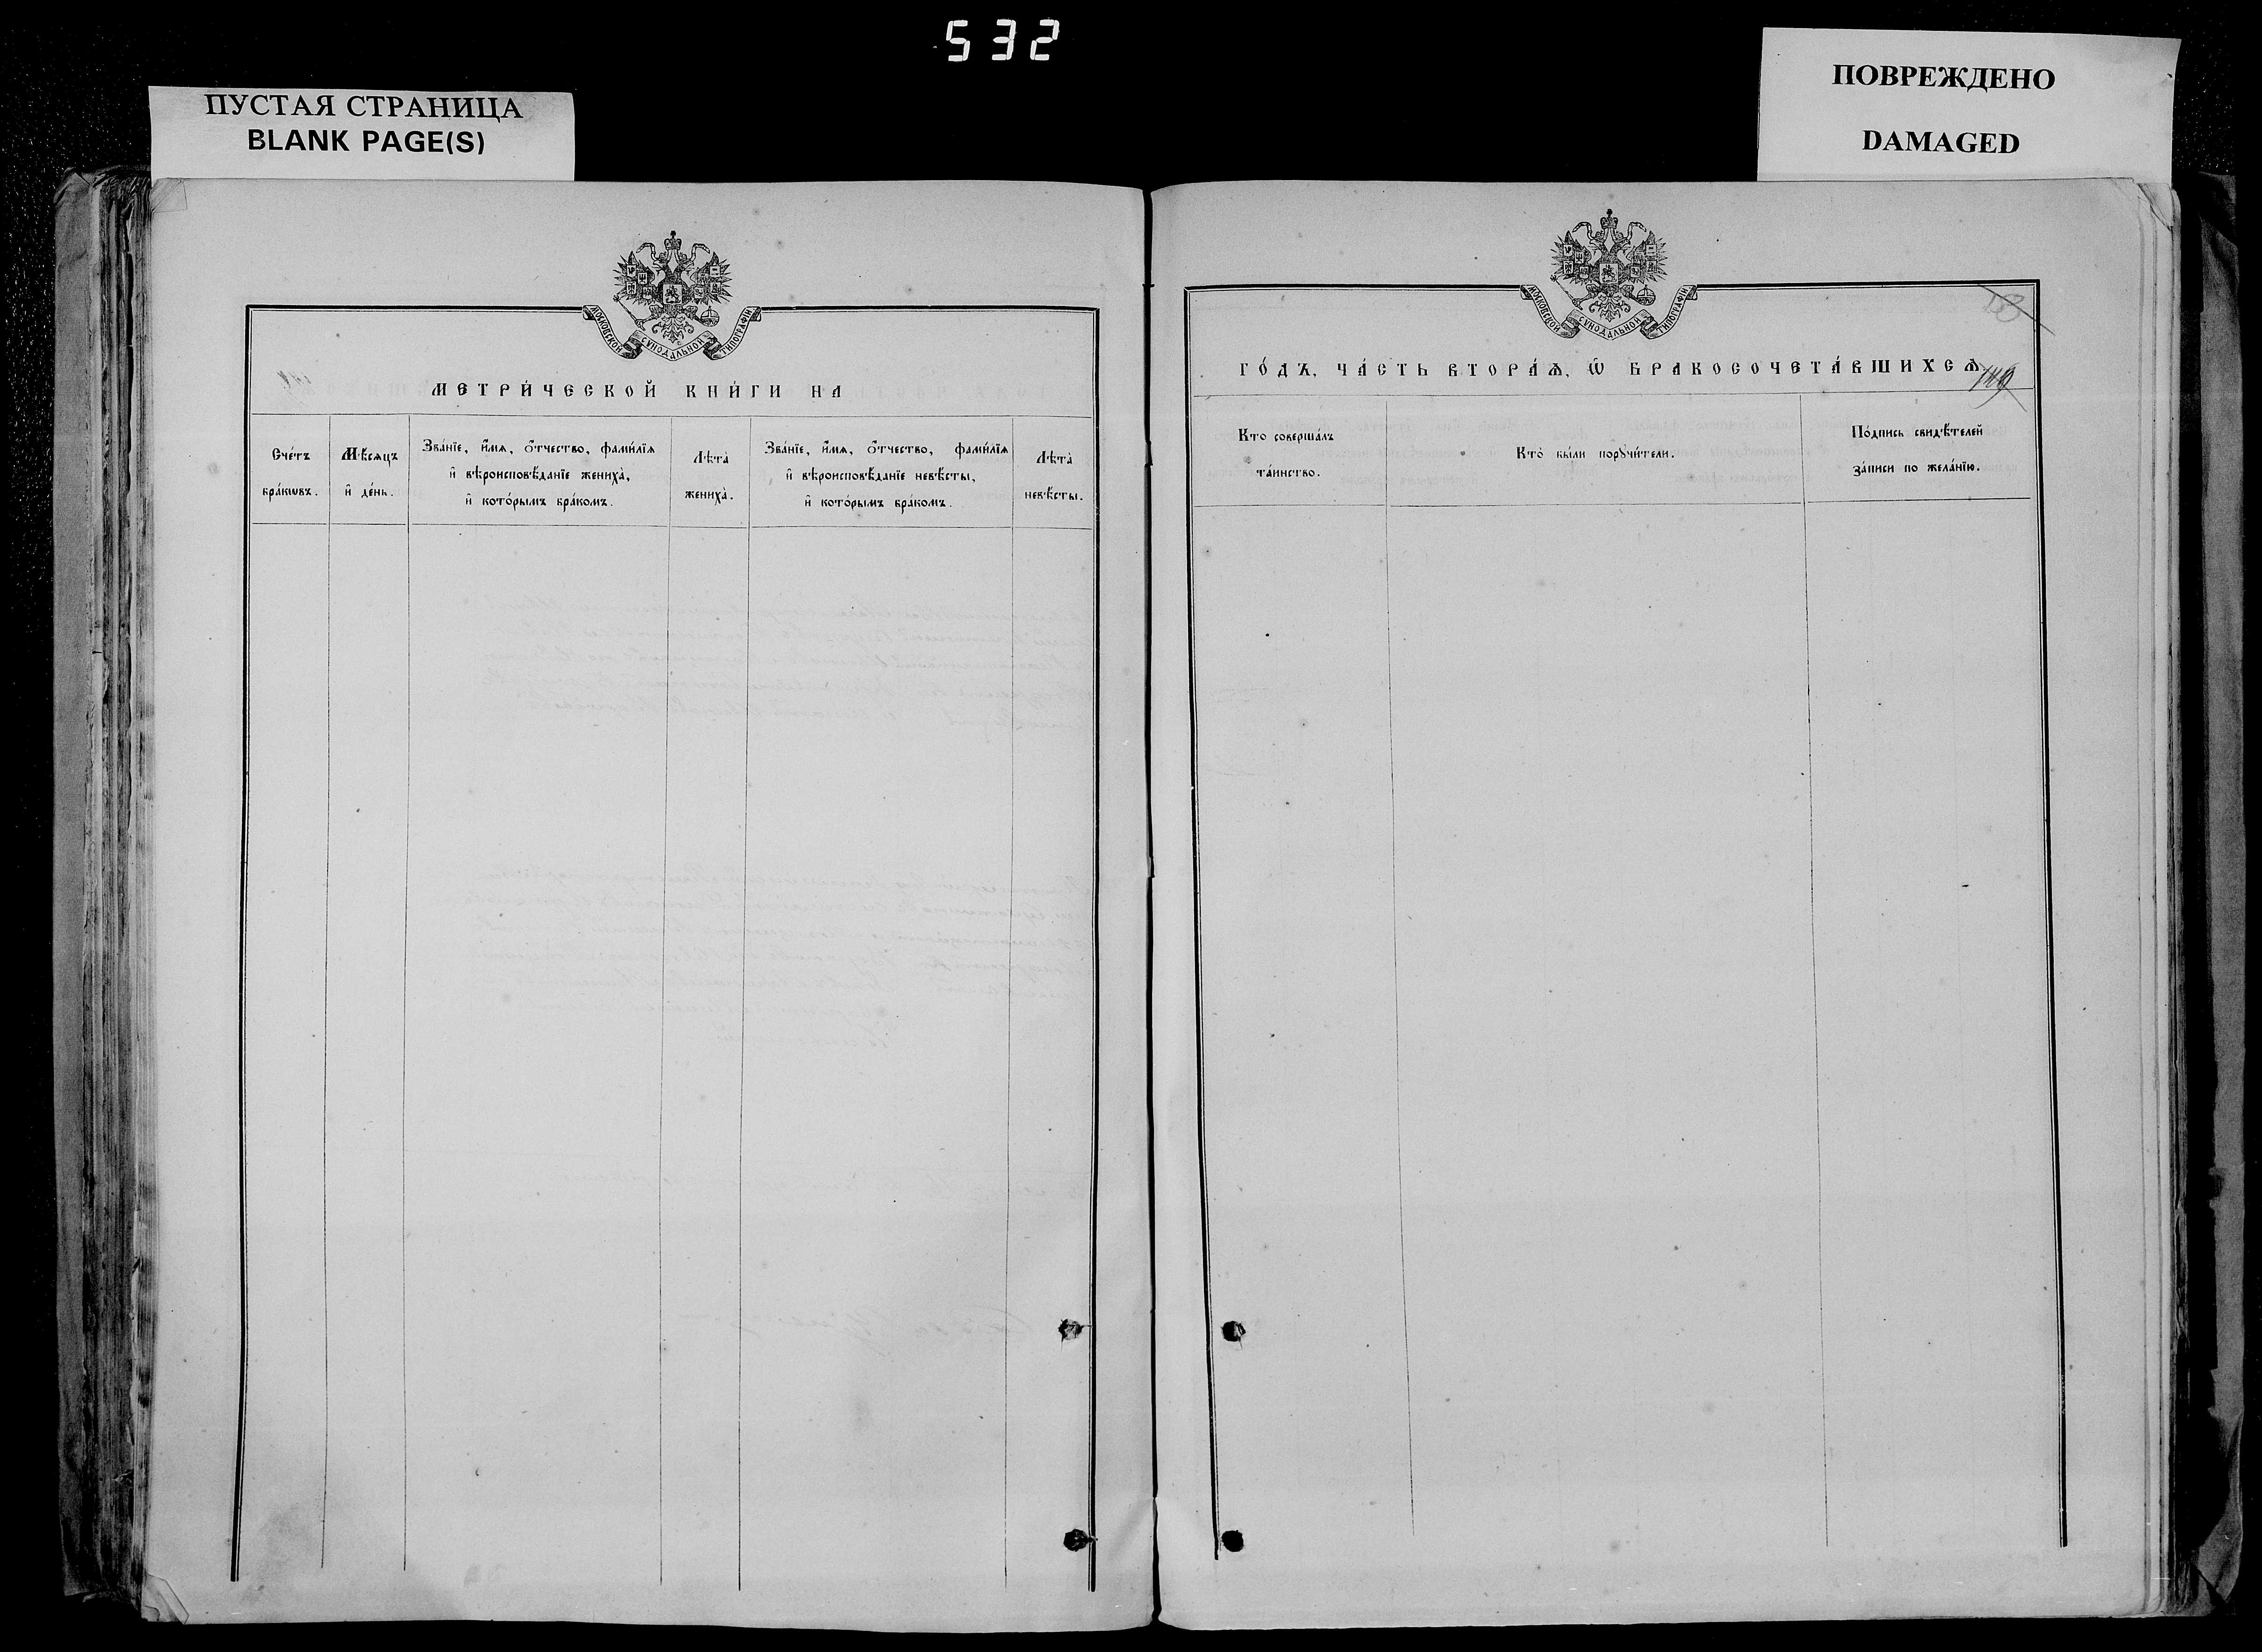 532
ПУСТАЯ СТРАНИЦА
BLANK PAGE(S)
ПОВРЕЖДЕНО
DAMAGED
МОСКОВСКОЙ СѴНОДАЛЬНОЙ ТИПОГРАФІИ
МЕТРИ́ЧЕСКОЙ КНИ́ГИ НА
Сче́тъ
бра́кѡвъ.
Мѣ́сяцъ
и҆ де́нь.
Зва́нїе, и҆́мѧ, ѻ҆́тчество, фами́лїѧ
и҆ вѣроисповѣ́данїе жениха̀,
и҆ кото́рымъ бра́комъ.
Лѣта̀
жениха̀.
Зва́нїе, и҆́мѧ, ѻ҆́тчество, фами́лїѧ
и҆ вѣроисповѣ́данїе невѣ́сты,
и҆ кото́рымъ бра́комъ.
Лѣта̀
невѣ́сты.
МОСКОВСКОЙ СѴНОДАЛЬНОЙ ТИПОГРАФІИ
153
ГО́ДЪ, ЧА́СТЬ ВТОРА́Ѧ, Ѡ҆ БРАКОСОЧЕТА́ВШИХСѦ
149
Кто соверша́лъ
та́инство.
Кто̀ бы́ли порꙋчи́тели.
По́дпись свидѣ́телей
за́писи по жела́нїю.